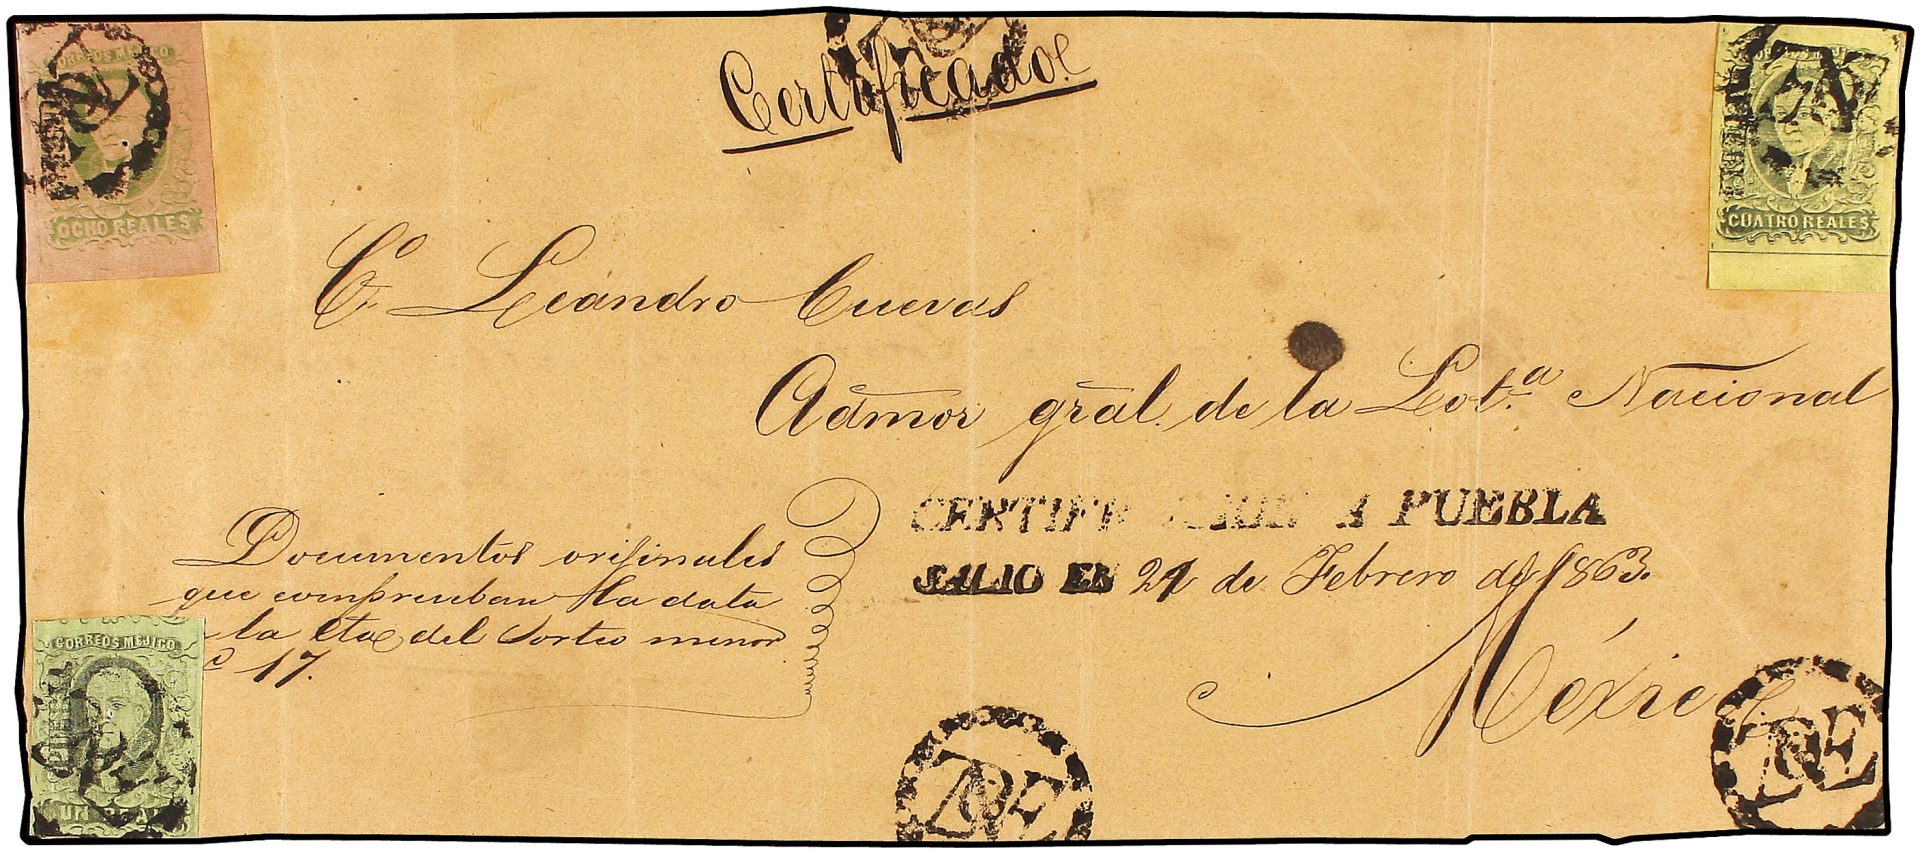 CORREOS MEJICO
OCHO REALES
Certificado
CUATRO REALES
C. Leandro Cuevas
Admor gral. de la Lot.ª Nacional
CERTIFI A PUEBLA
SALIO EN 21 de Febrero de 1863.
Documentos originales
que comprueban la data
la cta del Sorteo menor
17.
México
CORREOS MEJICO
UN REAL